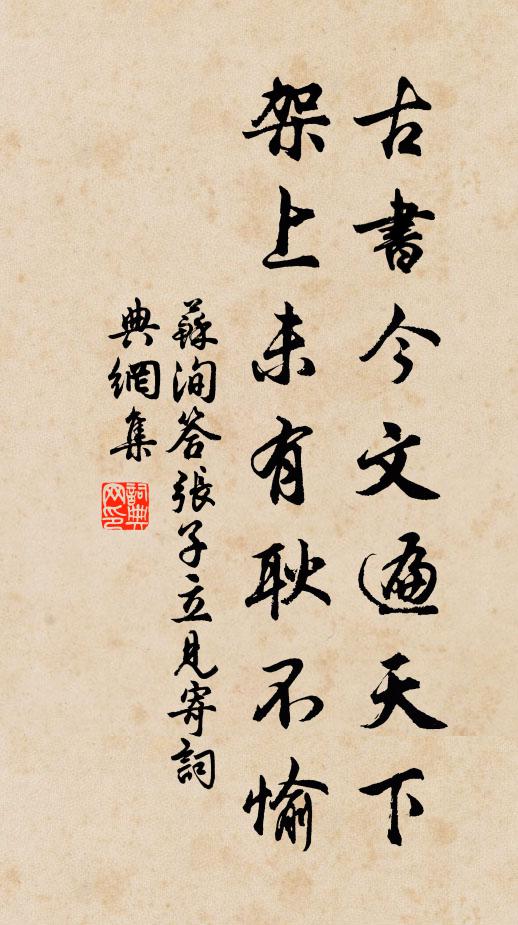 古書今文遍天下
架上未有耿不愉
蘇洵答張子立見寄詞
典網集
詞典网印